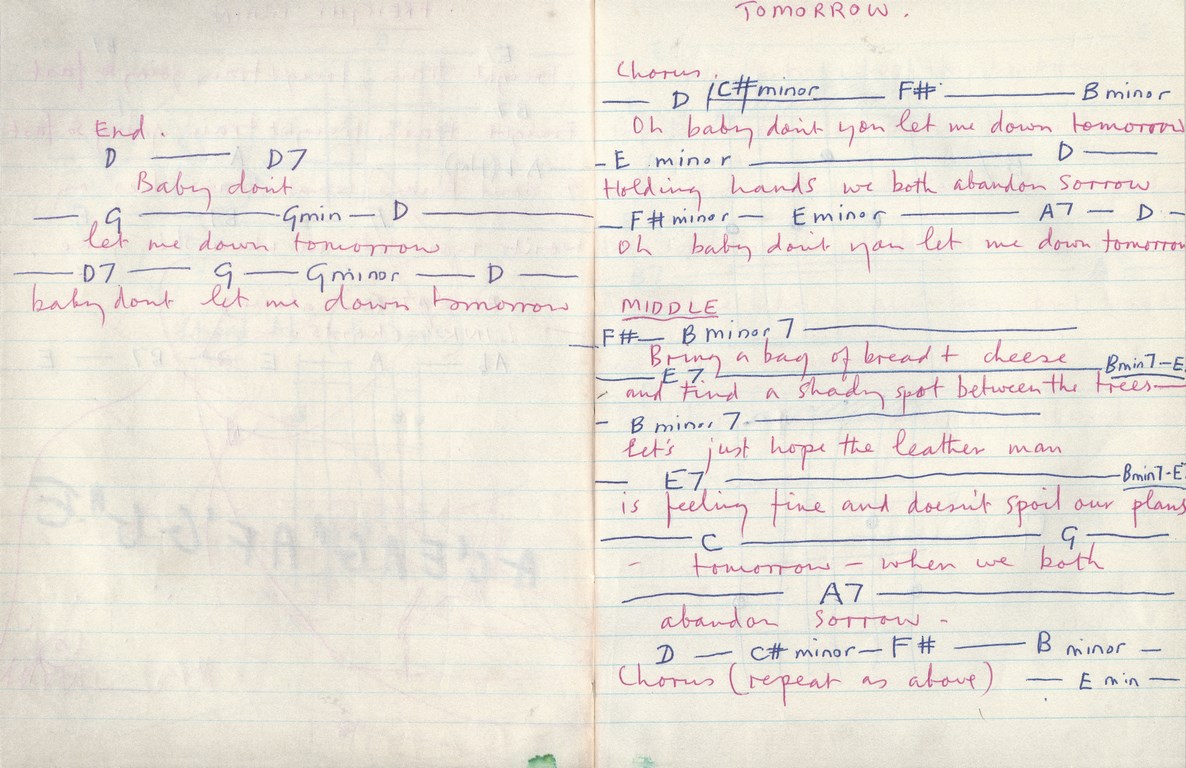 End.
D — D7
Baby don't
— G — Gmin — D —
let me down tomorrow
— D7 — G — Gminor — D —
baby dont let me down tomorrow
TOMORROW.
Chorus.
— D / C#minor — F# — B minor
Oh baby don't you let me down tomorrow
- E minor — D —
Holding hands we both abandon sorrow
— F# minor — E minor — A7 — D -
Oh baby don't you let me down tomorrow
MIDDLE
F# — B minor 7 —
Bring a bag of bread + cheese
— E7 — Bmin7-E
- and find a shady spot between the trees —
- B minor 7 —
Let's just hope the leather man
— E7 — Bmin7-E
is feeling fine and doesn't spoil our plans
— C — G —
- tomorrow - when we both
— A7 —
abandon sorrow -
D — C# minor — F# — B minor —
Chorus (repeat as above) — E min —